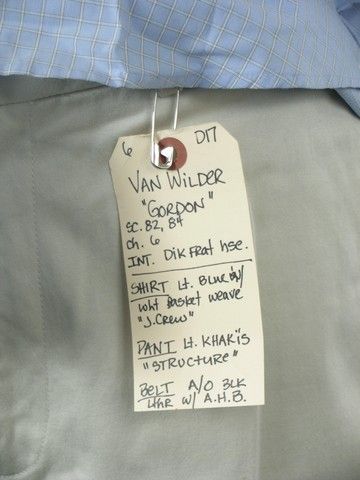 6 D17
VAN WILDER
"GORDON"
SC. 82, 84
Ch. 6
INT. DIK FRAT hse.
SHIRT Lt. BLUE W/
wht basket weave
"J. Crew"
PANT Lt. KHAKIS
"STRUCTURE"
BELT A/O BLK
LTHR W/ A.H.B.